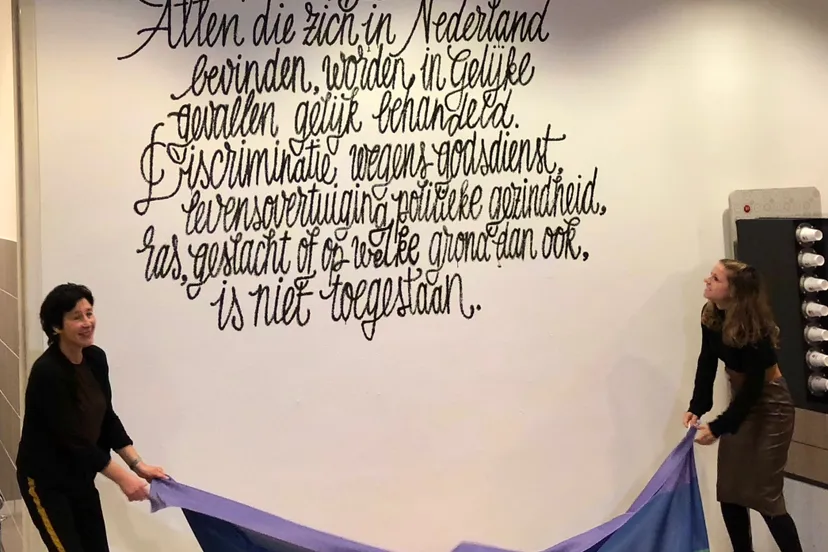 Allen die zich in Nederland
bevinden, worden in gelijke
gevallen gelijk behandeld.
Discriminatie wegens godsdienst,
levensovertuiging, politieke gezindheid,
ras, geslacht of op welke grond dan ook,
is niet toegestaan.